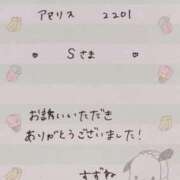 アモリス 2201
♥ Sさま ♥
お誘いいただき
ありがとうございました!
すずね